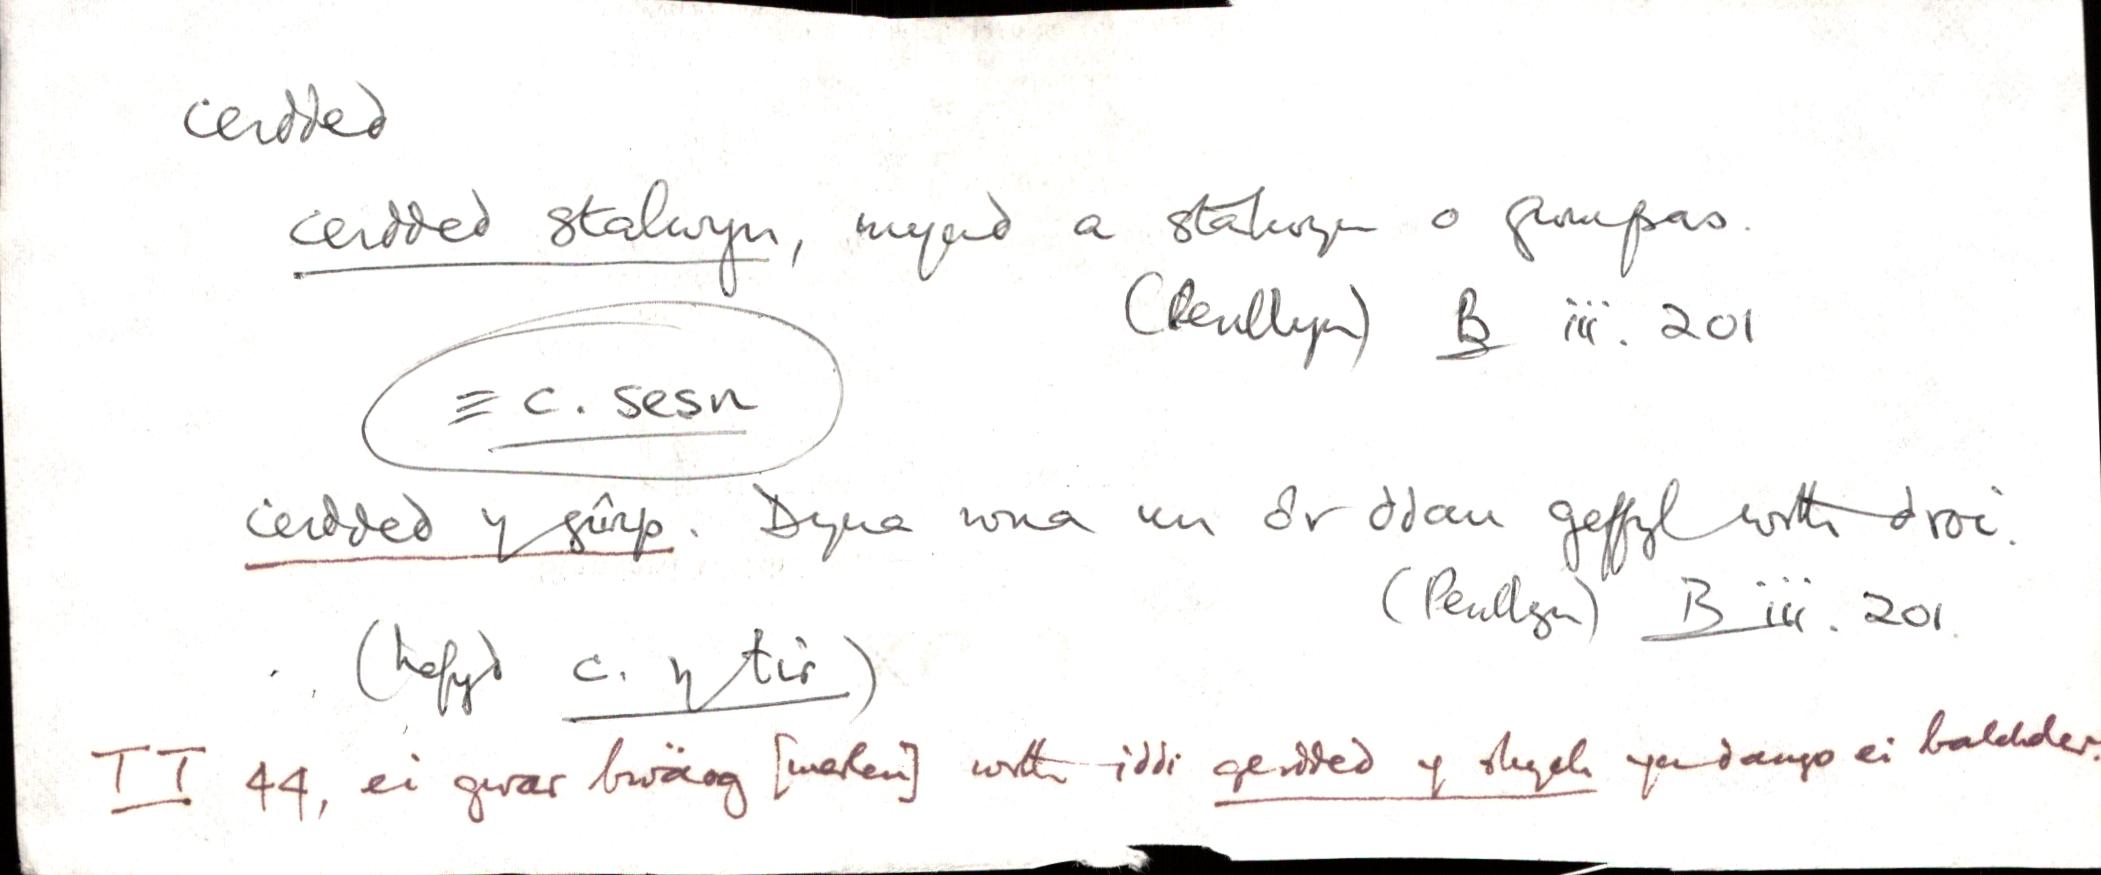 cerdded
cerdded stalwyn, myned a stalwyn o gwmpas.
(Penllyn) B iii. 201
≡ c. sesn
cerdded y gŵys. Dyna wna un o'r ddau geffyl wrth droi.
(Penllyn) B iii. 201.
(hefyd c. y tir)
TT 44, ei gwar bwäog [merlen] wrth iddi gerdded y rhych yn dangos ei balchder.